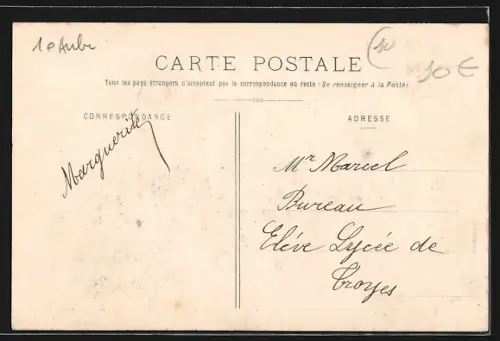 10 Aube
10€
CARTE POSTALE
Tous les pays étrangers n'acceptent pas la correspondance au recto (Se renseigner à la Poste)
CORRESPONDANCE
Marguerite
ADRESSE
Mr Marcel
Bureau
Elève Lycée de
Troyes